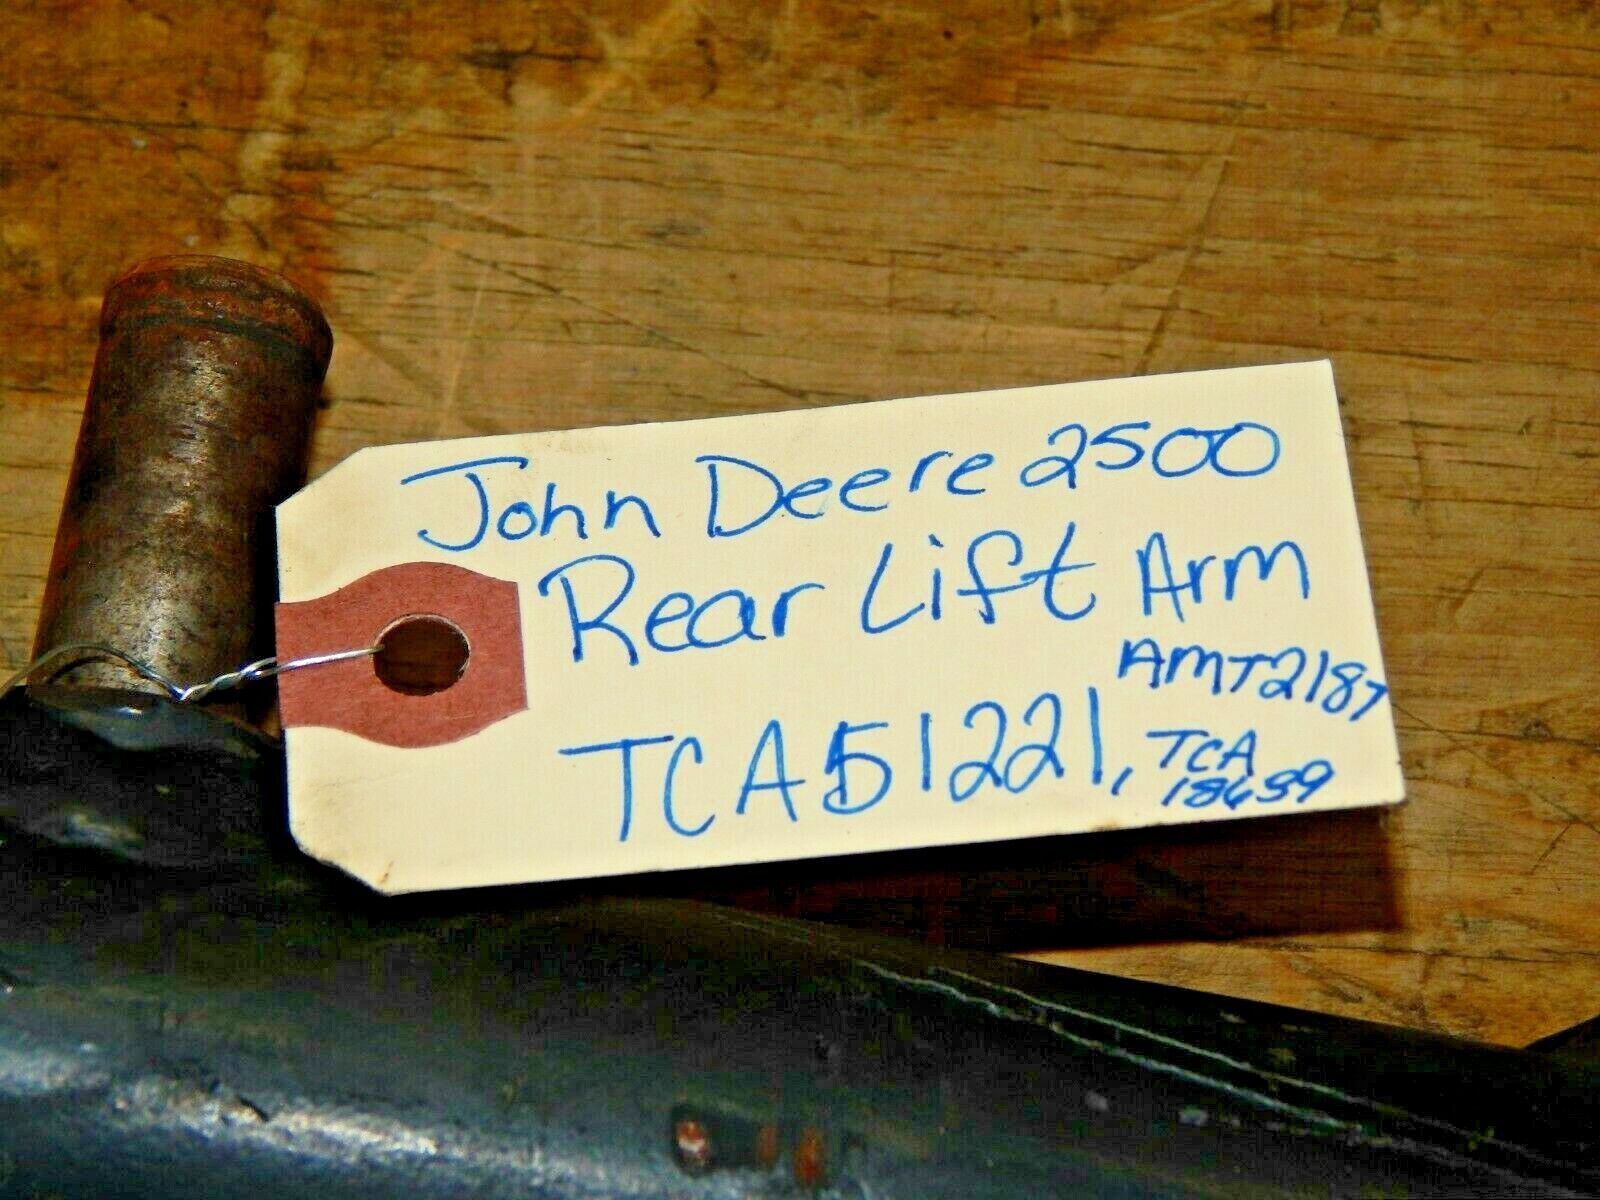 John Deere 2500
Rear Lift Arm
AMT2187
TCA51221,
TCA
18659